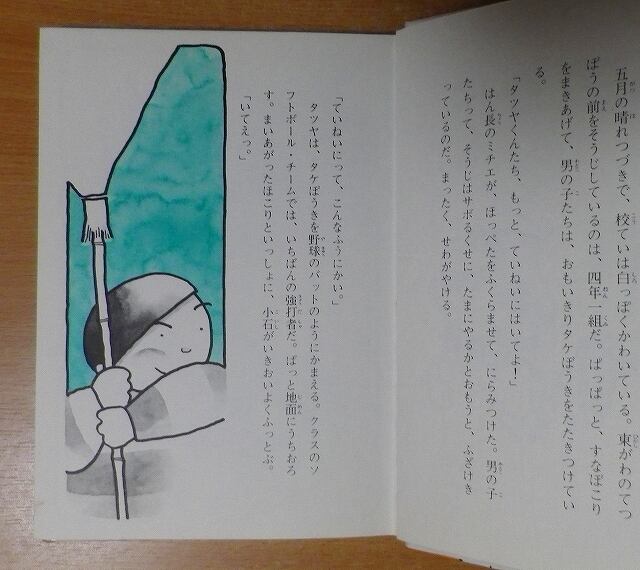 五月の晴れつづきで、校ていは白っぽくかわいている。東がわのてつ
ぼうの前をそうじしているのは、四年一組だ。ぱっぱっと、すなぼこり
をまきあげて、男の子たちは、おもいきりタケぼうきをたたきつけてい
る。
「タツヤくんたち、もっと、ていねいにはいてよ！」
はん長のミチエが、ほっぺたをふくらませて、にらみつけた。男の子
たちって、そうじはサボるくせに、たまにやるかとおもうと、ふざけき
っているのだ。まったく、せわがやける。
「ていねいにって、こんなふうにかい。」
タツヤは、タケぼうきを野球のバットのようにかまえる。クラスのソ
フトボール・チームでは、いちばんの強打者だ。ぱっと地面にうちおろ
す。まいあがったほこりといっしょに、小石がいきおいよくふっとぶ。
「いてえっ。」